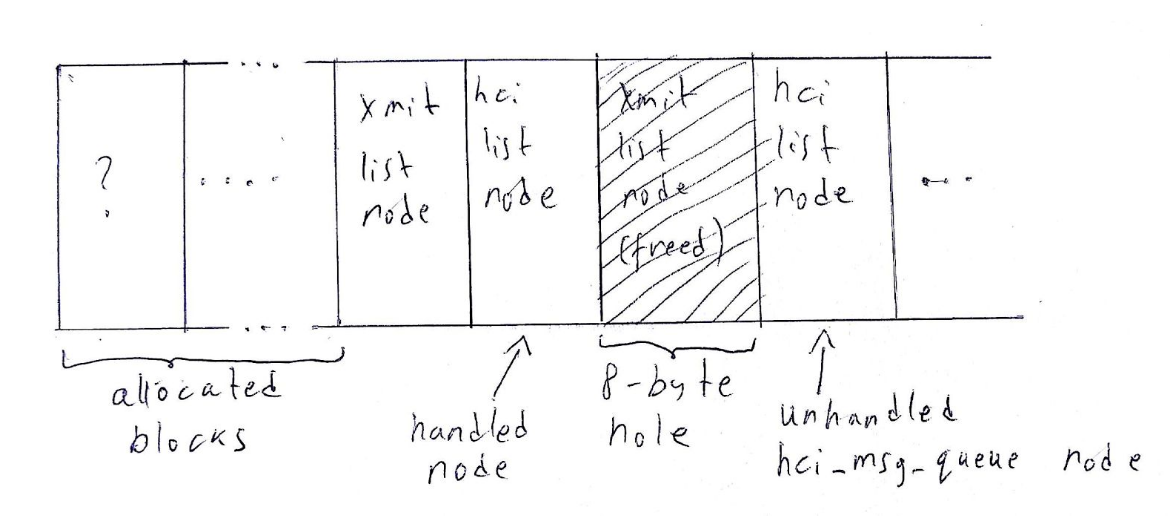 ...
?
....
xmit
list
node
hci
list
node
xmit
list
node
(freed)
hci
list
node
...
...
allocated
blocks
handled
node
8-byte
hole
unhandled
hci_msg_queue node